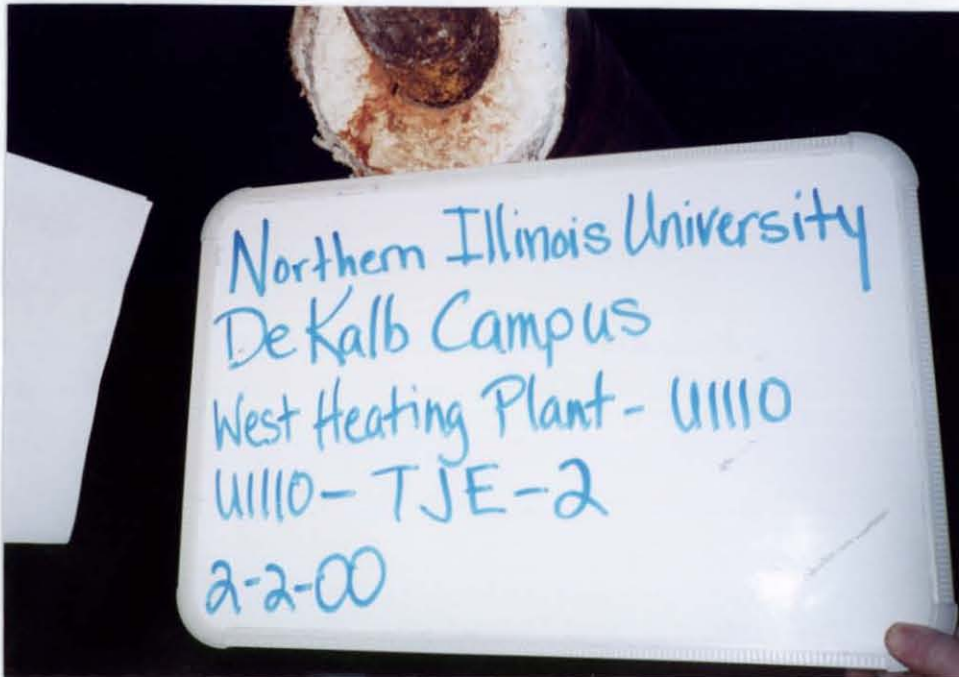 Northern Illinois University
DeKalb Campus
West Heating Plant - U1110
U1110 - TJE - 2
2-2-00